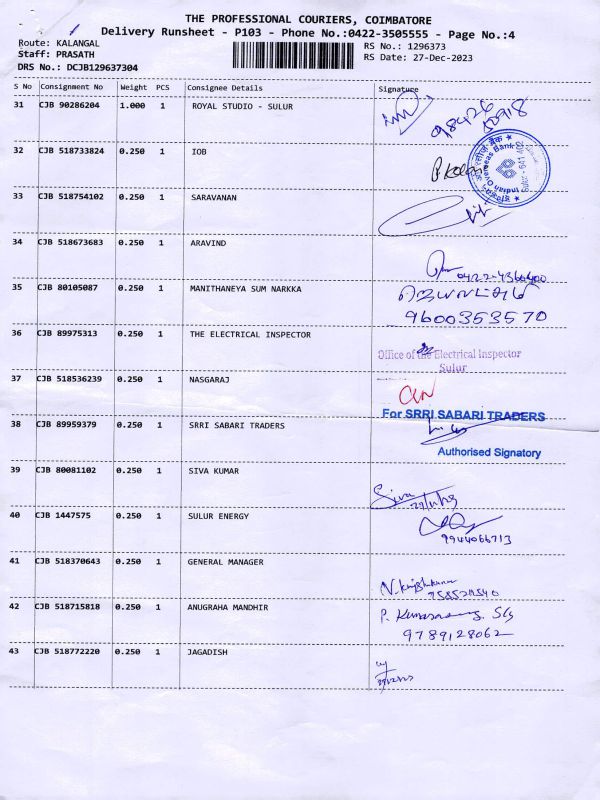 THE PROFESSIONAL COURIERS, COIMBATORE
Delivery Runsheet - P103 - Phone No.:0422-3505555 - Page No.:4
Route: KALANGAL
RS No.: 1296373
Staff: PRASATH
RS Date: 27-Dec-2023
DRS No.: DCJB129637304
S No Consignment No Weight PCS Consignee Details Signature
31 CJB 90286204 1.000 1 ROYAL STUDIO - SULUR
32 CJB 518733824 0.250 1 IOB
Indian Overseas Bank
33 CJB 518754102 0.250 1 SARAVANAN
34 CJB 518673683 0.250 1 ARAVIND
35 CJB 80105087 0.250 1 MANITHANEYA SUM NARKKA
9600353570
36 CJB 89975313 0.250 1 THE ELECTRICAL INSPECTOR
Office of the Electrical Inspector
Sulur
37 CJB 518536239 0.250 1 NASGARAJ
38 CJB 89959379 0.250 1 SRRI SABARI TRADERS
For SRRI SABARI TRADERS
Authorised Signatory
39 CJB 80081102 0.250 1 SIVA KUMAR
Siva
40 CJB 1447575 0.250 1 SULUR ENERGY
9944066713
41 CJB 518370643 0.250 1 GENERAL MANAGER
42 CJB 518715818 0.250 1 ANUGRAHA MANDHIR
9789128062
43 CJB 518772220 0.250 1 JAGADISH